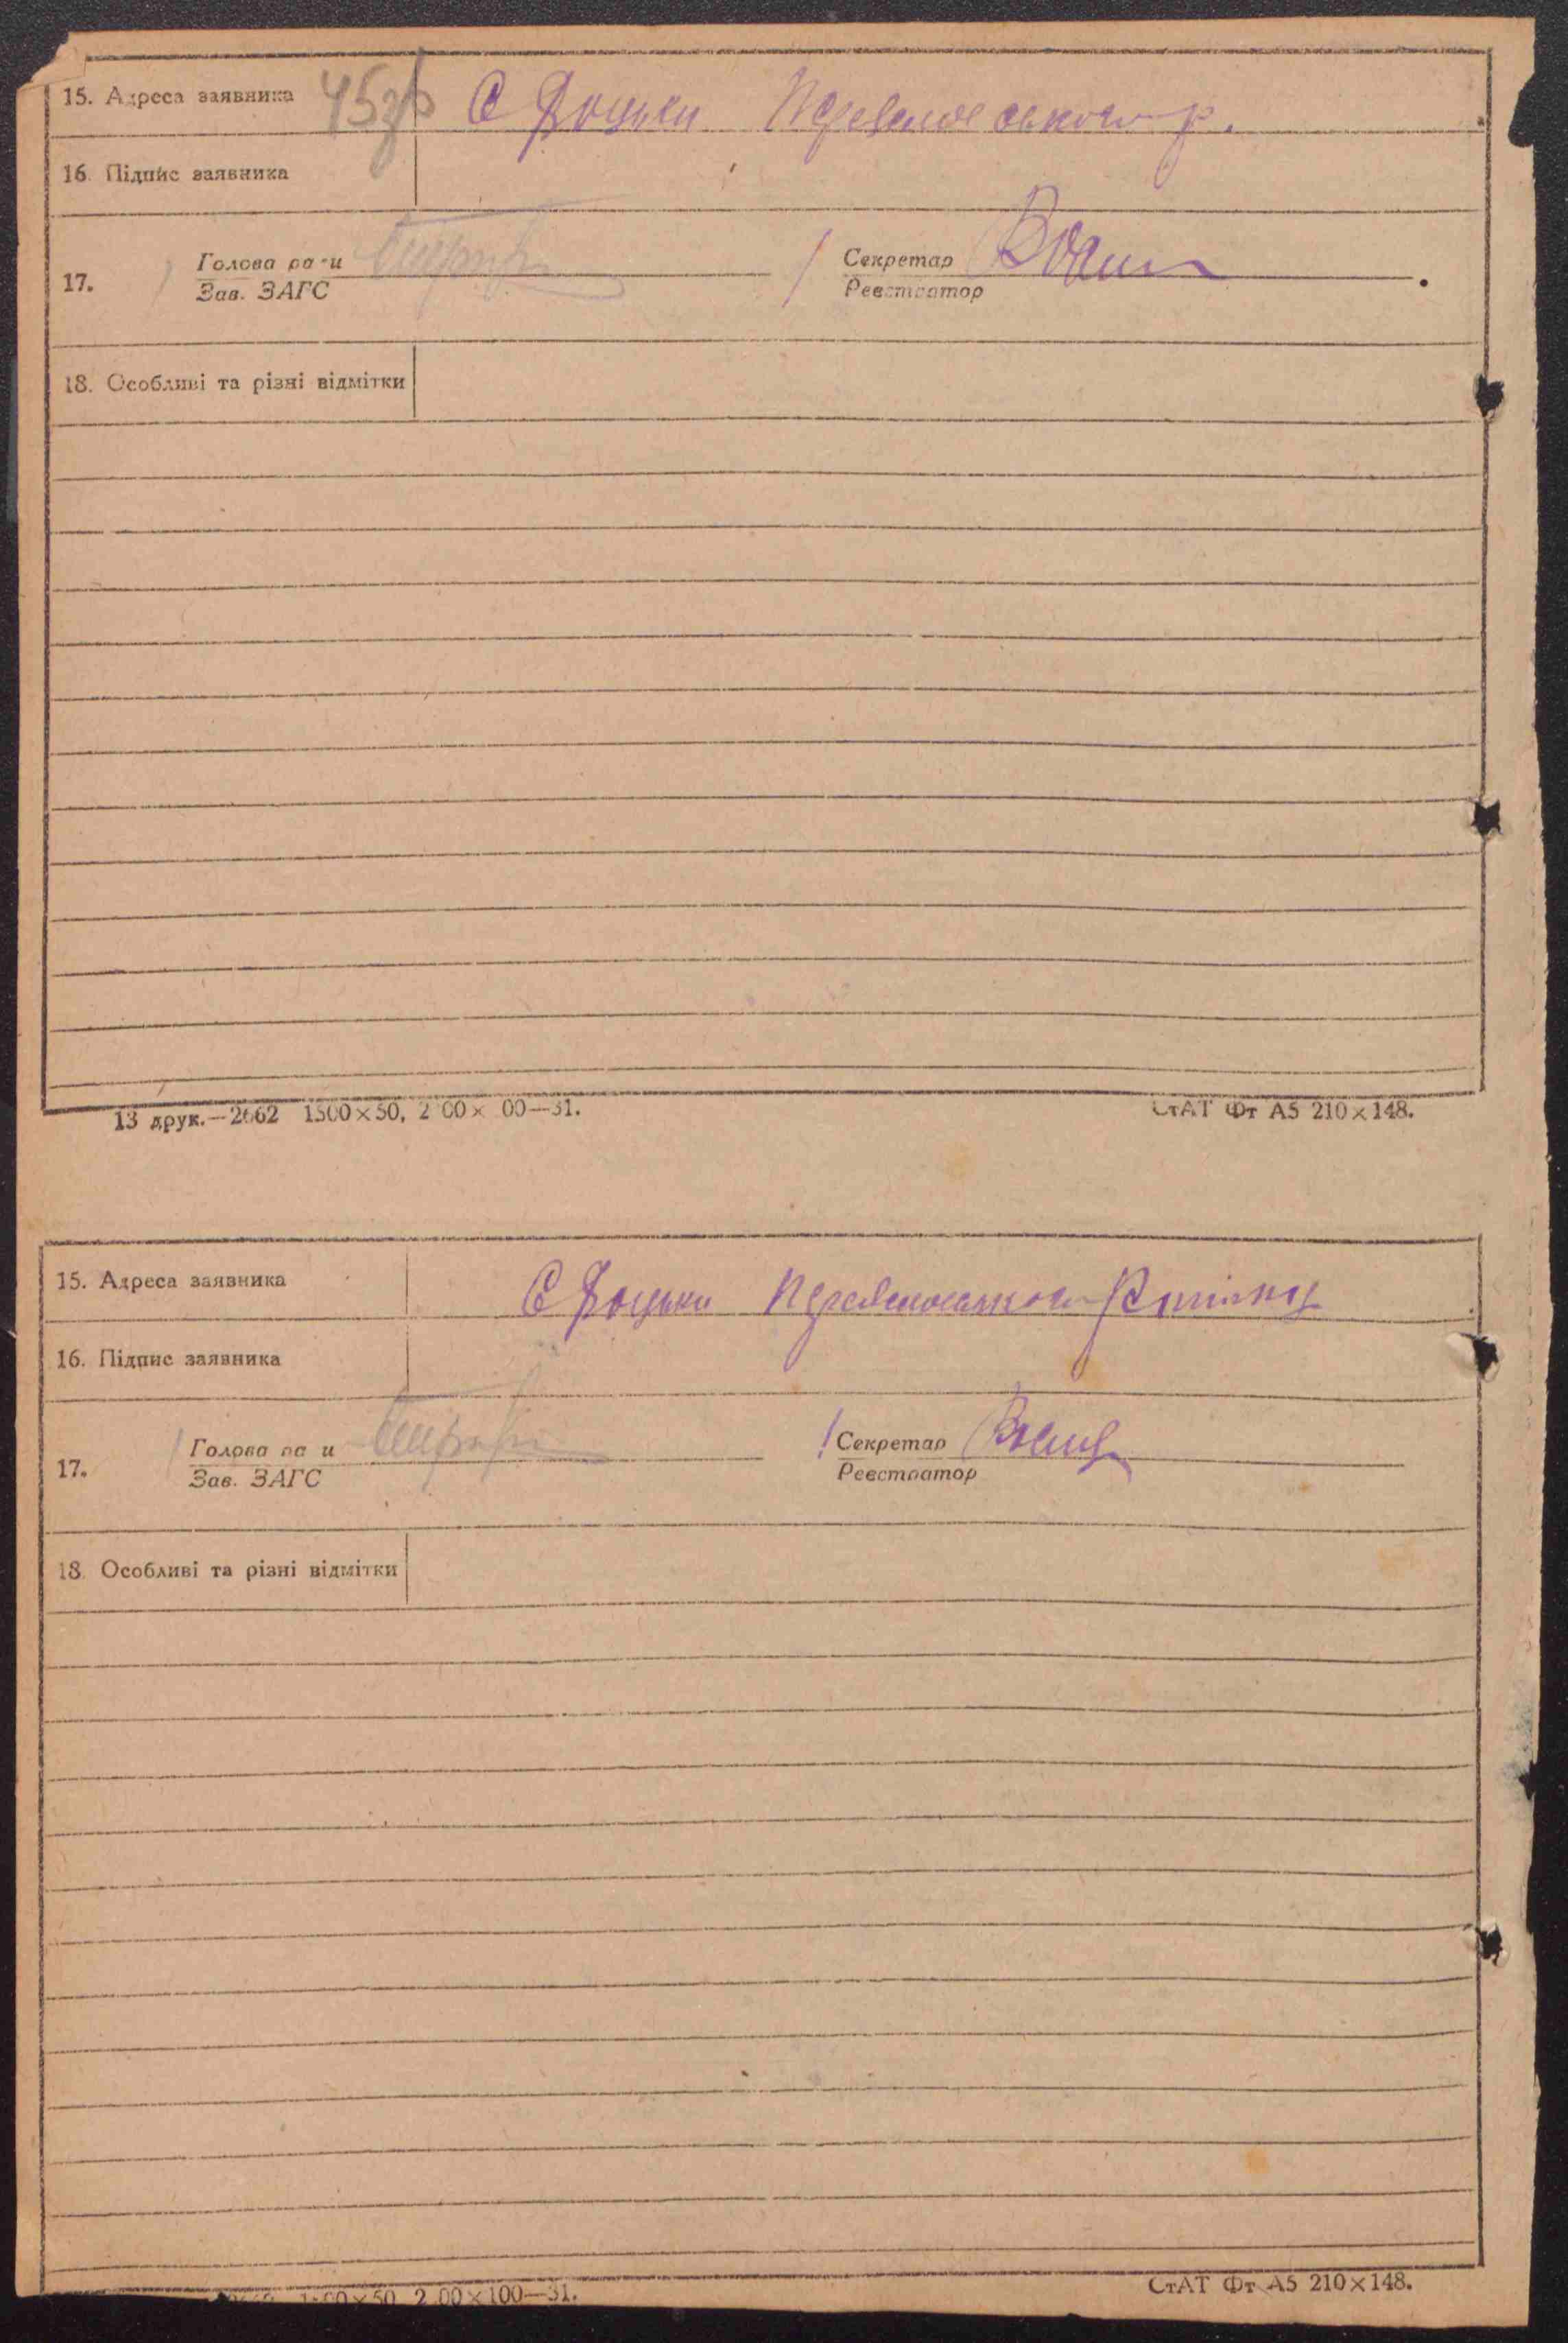 15. Адреса заявника 45зв С Доцьки
16. Підпис заявника
Голова ра и Секретар
17.
Зав. ЗАГС Реєстратор
18. Особливі та різні відмітки
13 друк.—2662 1500×50, 2 00× 00—31. СтАТ Фт А5 210×148.
15. Адреса заявника С Доцьки
16. Підпис заявника
Голова ра и Секретар
17.
Зав. ЗАГС Реєстратор
18. Особливі та різні відмітки
×50 2 00×100—31. СтАТ Фт А5 210×148.